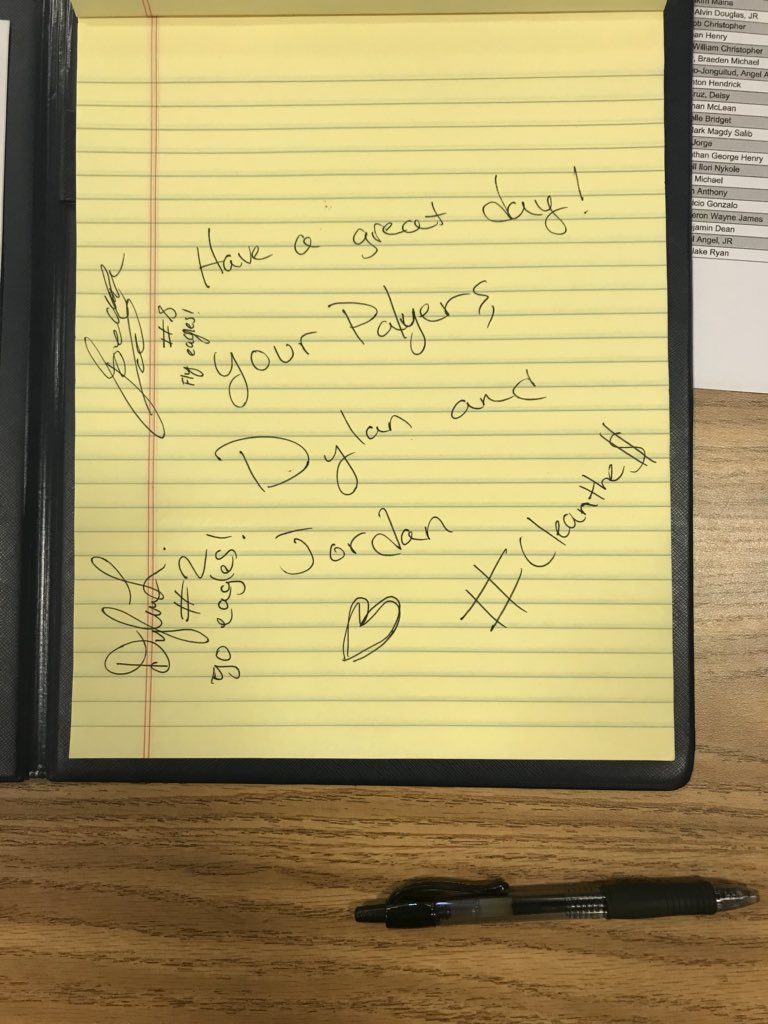 Have a great day!
your Palyers,
Dylan and
Jordan
#cleanthe$
#8
Fly eagles!
Dylan L.
#2
go eagles!
Alvin Douglas, JR
Christopher
Henry
William Christopher
, Braeden Michael
o-Jonguitud, Angel A
Hendrick
ruz, Deisy
McLean
Bridget
Mark Magdy Salib
Jorge
George Henry
Ilori Nykole
Michael
Anthony
Gonzalo
Wayne James
Dean
Angel, JR
Ryan